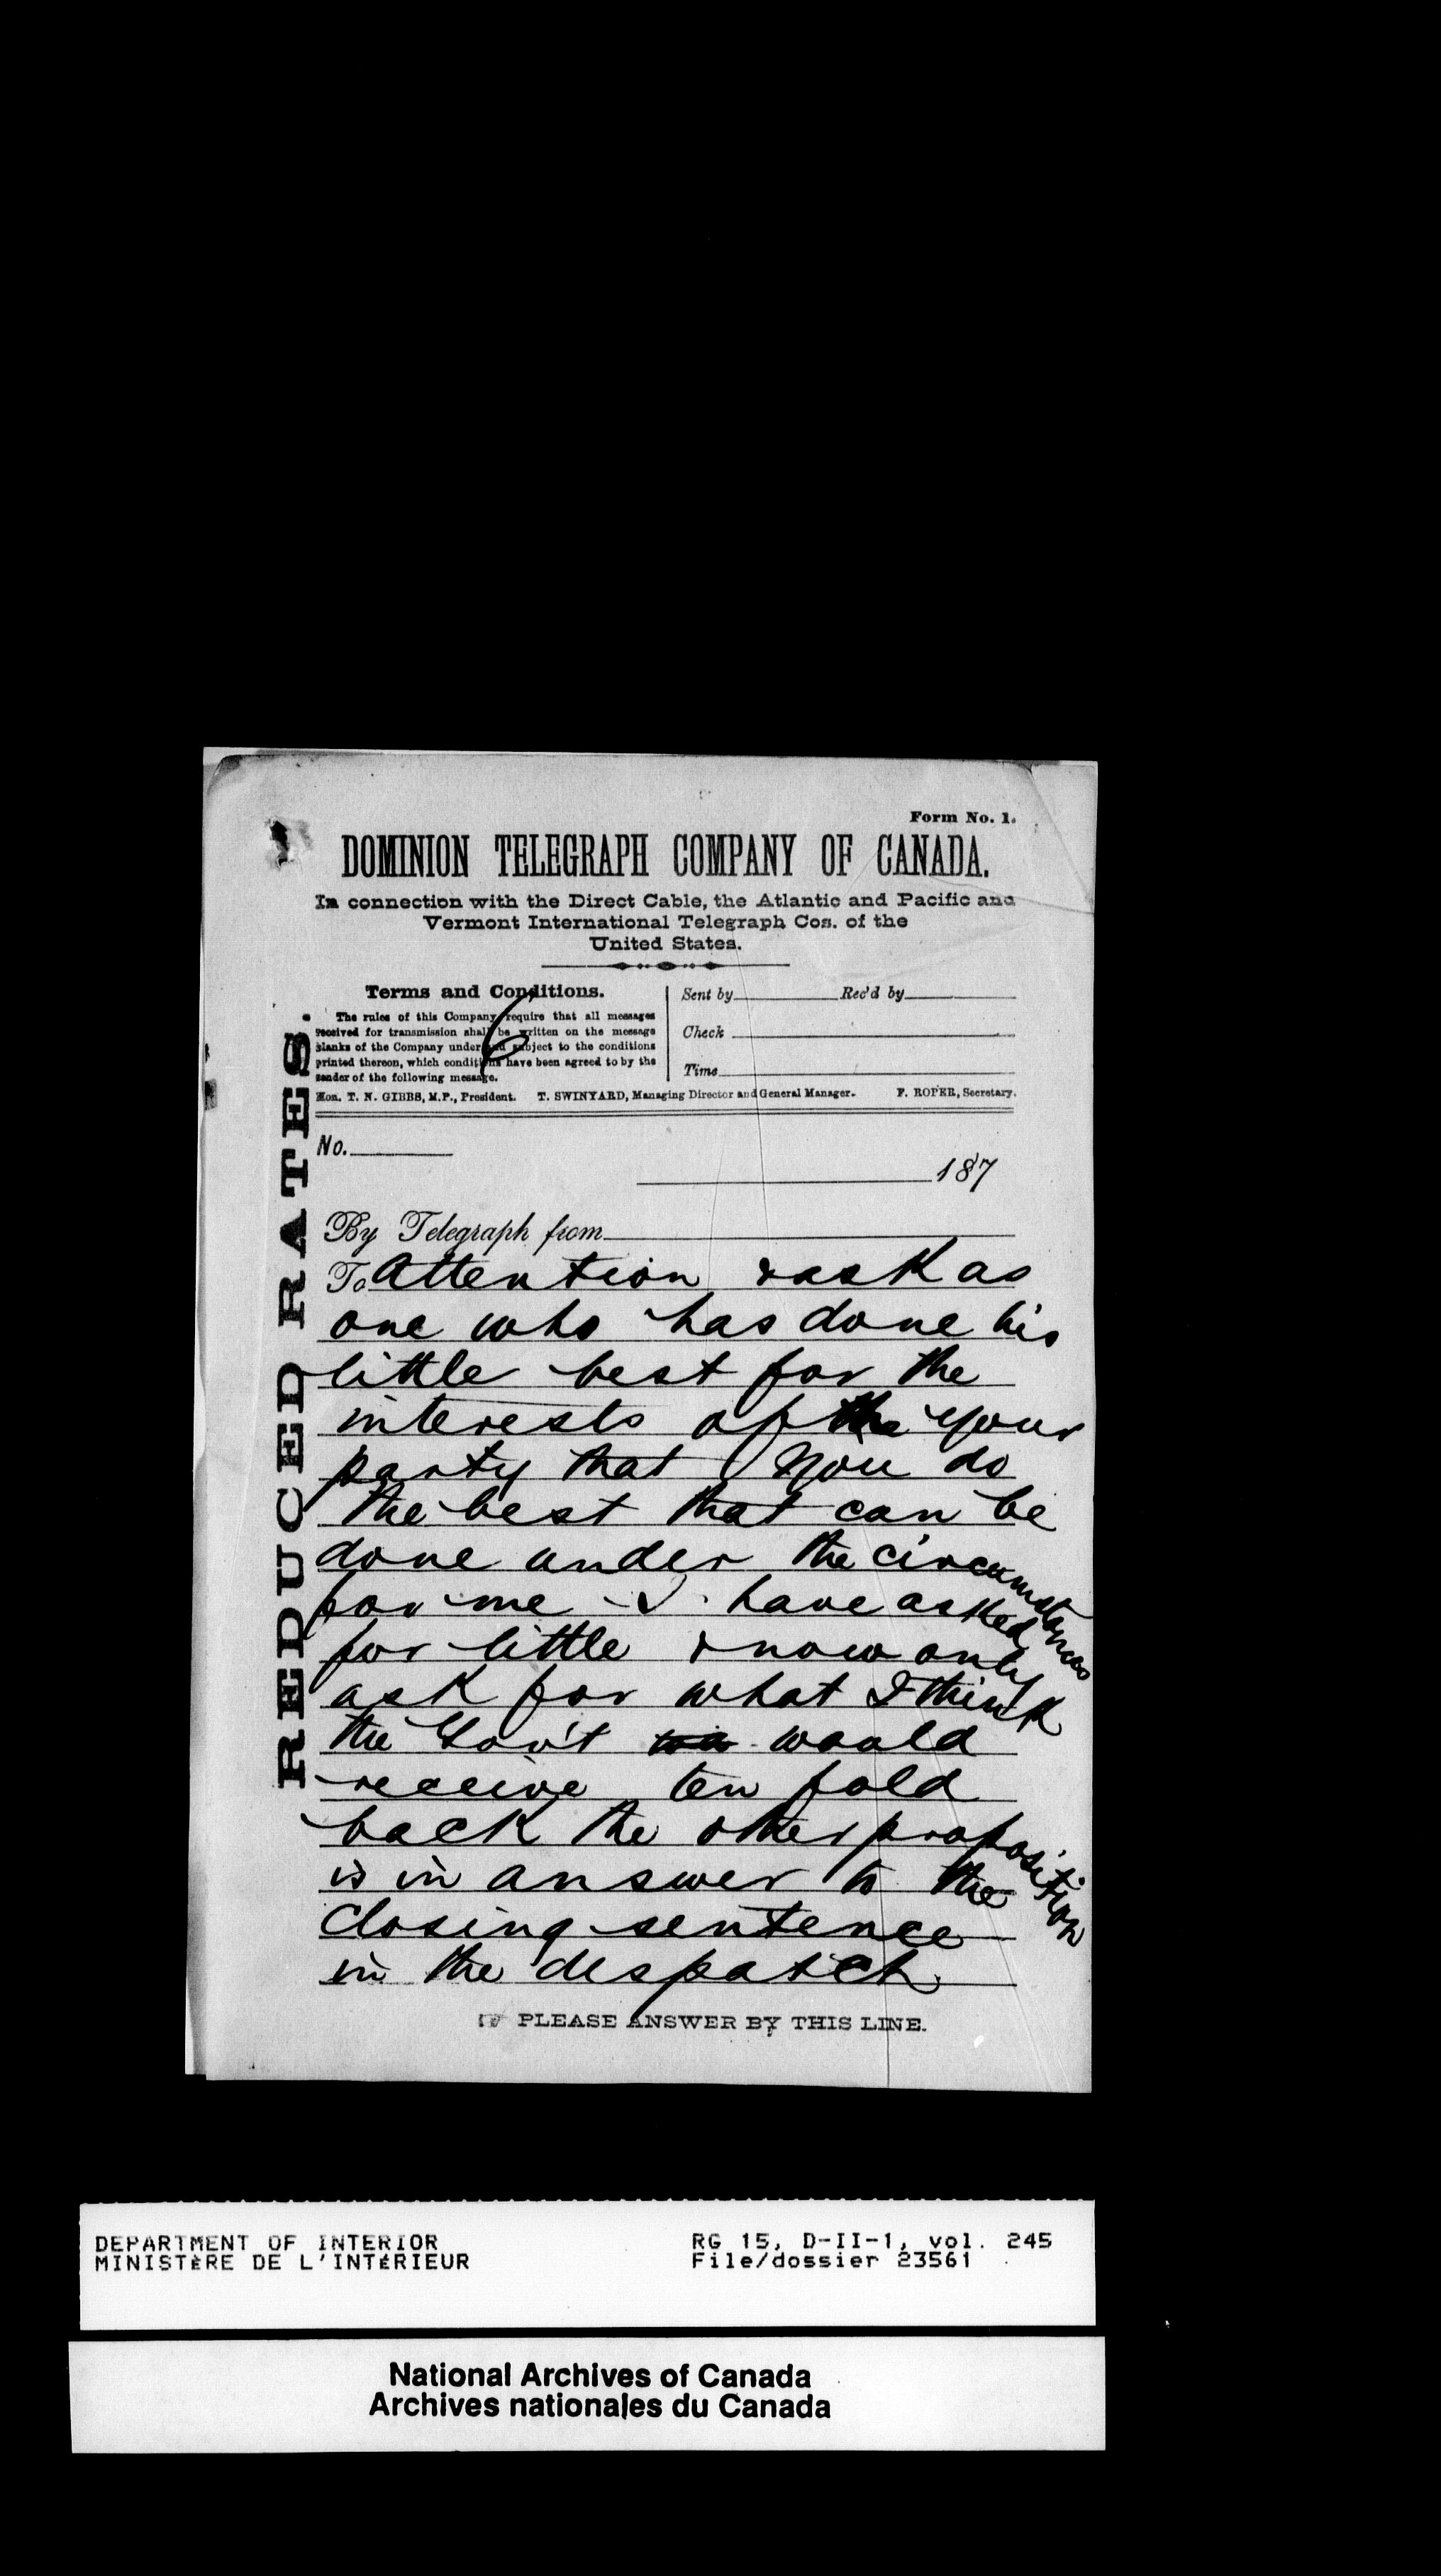 Form No. 1.
DOMINION TELEGRAPH COMPANY OF CANADA.
In connection with the Direct Cable, the Atlantic and Pacific and
Vermont International Telegraph Cos. of the
United States.
Terms and Conditions.
The rules of this Company require that all messages
received for transmission shall be written on the message
blanks of the Company under and subject to the conditions
printed thereon, which conditions have been agreed to by the
sender of the following message.
6
Sent by Rec'd by
Check
Time
Hon. T. N. GIBBS, M.P., President. T. SWINYARD, Managing Director and General Manager. F. ROPER, Secretary.
REDUCED RATES.
No.
187
By Telegraph from
To Attention & ask as
one who has done his
little best for the
interests of the your
party that you do
the best that can be
done under the circumstances
for me I have asked
for little & now only
ask for what I think
the Gov't would
receive ten fold
back the other proposition
is in answer to the
closing sentence
in the despatch
PLEASE ANSWER BY THIS LINE.
DEPARTMENT OF INTERIOR
MINISTÈRE DE L'INTÉRIEUR
RG 15, D-II-1, vol. 245
File/dossier 23561
National Archives of Canada
Archives nationales du Canada